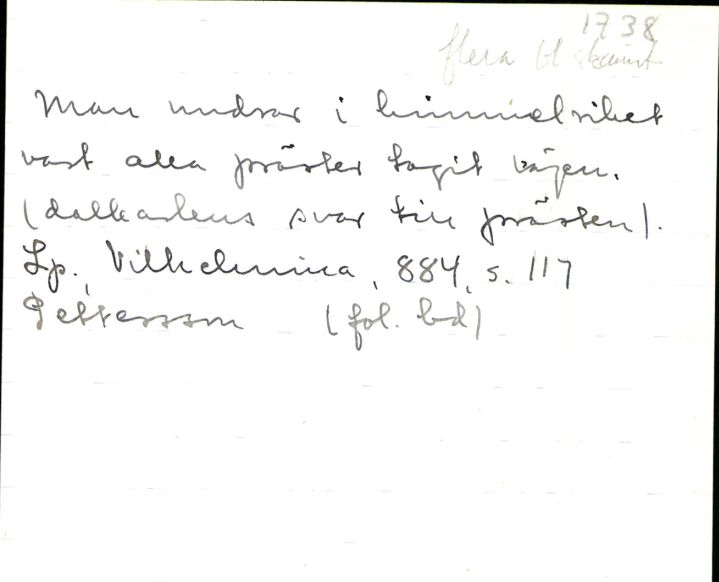 1738
flera
Man undrar i himmelriket
vart alla präster tagit vägen.
(dalkarlens svar till prästen).
Lp., Vilhelmina, 884, s. 117
Pettersson (fol. bd)